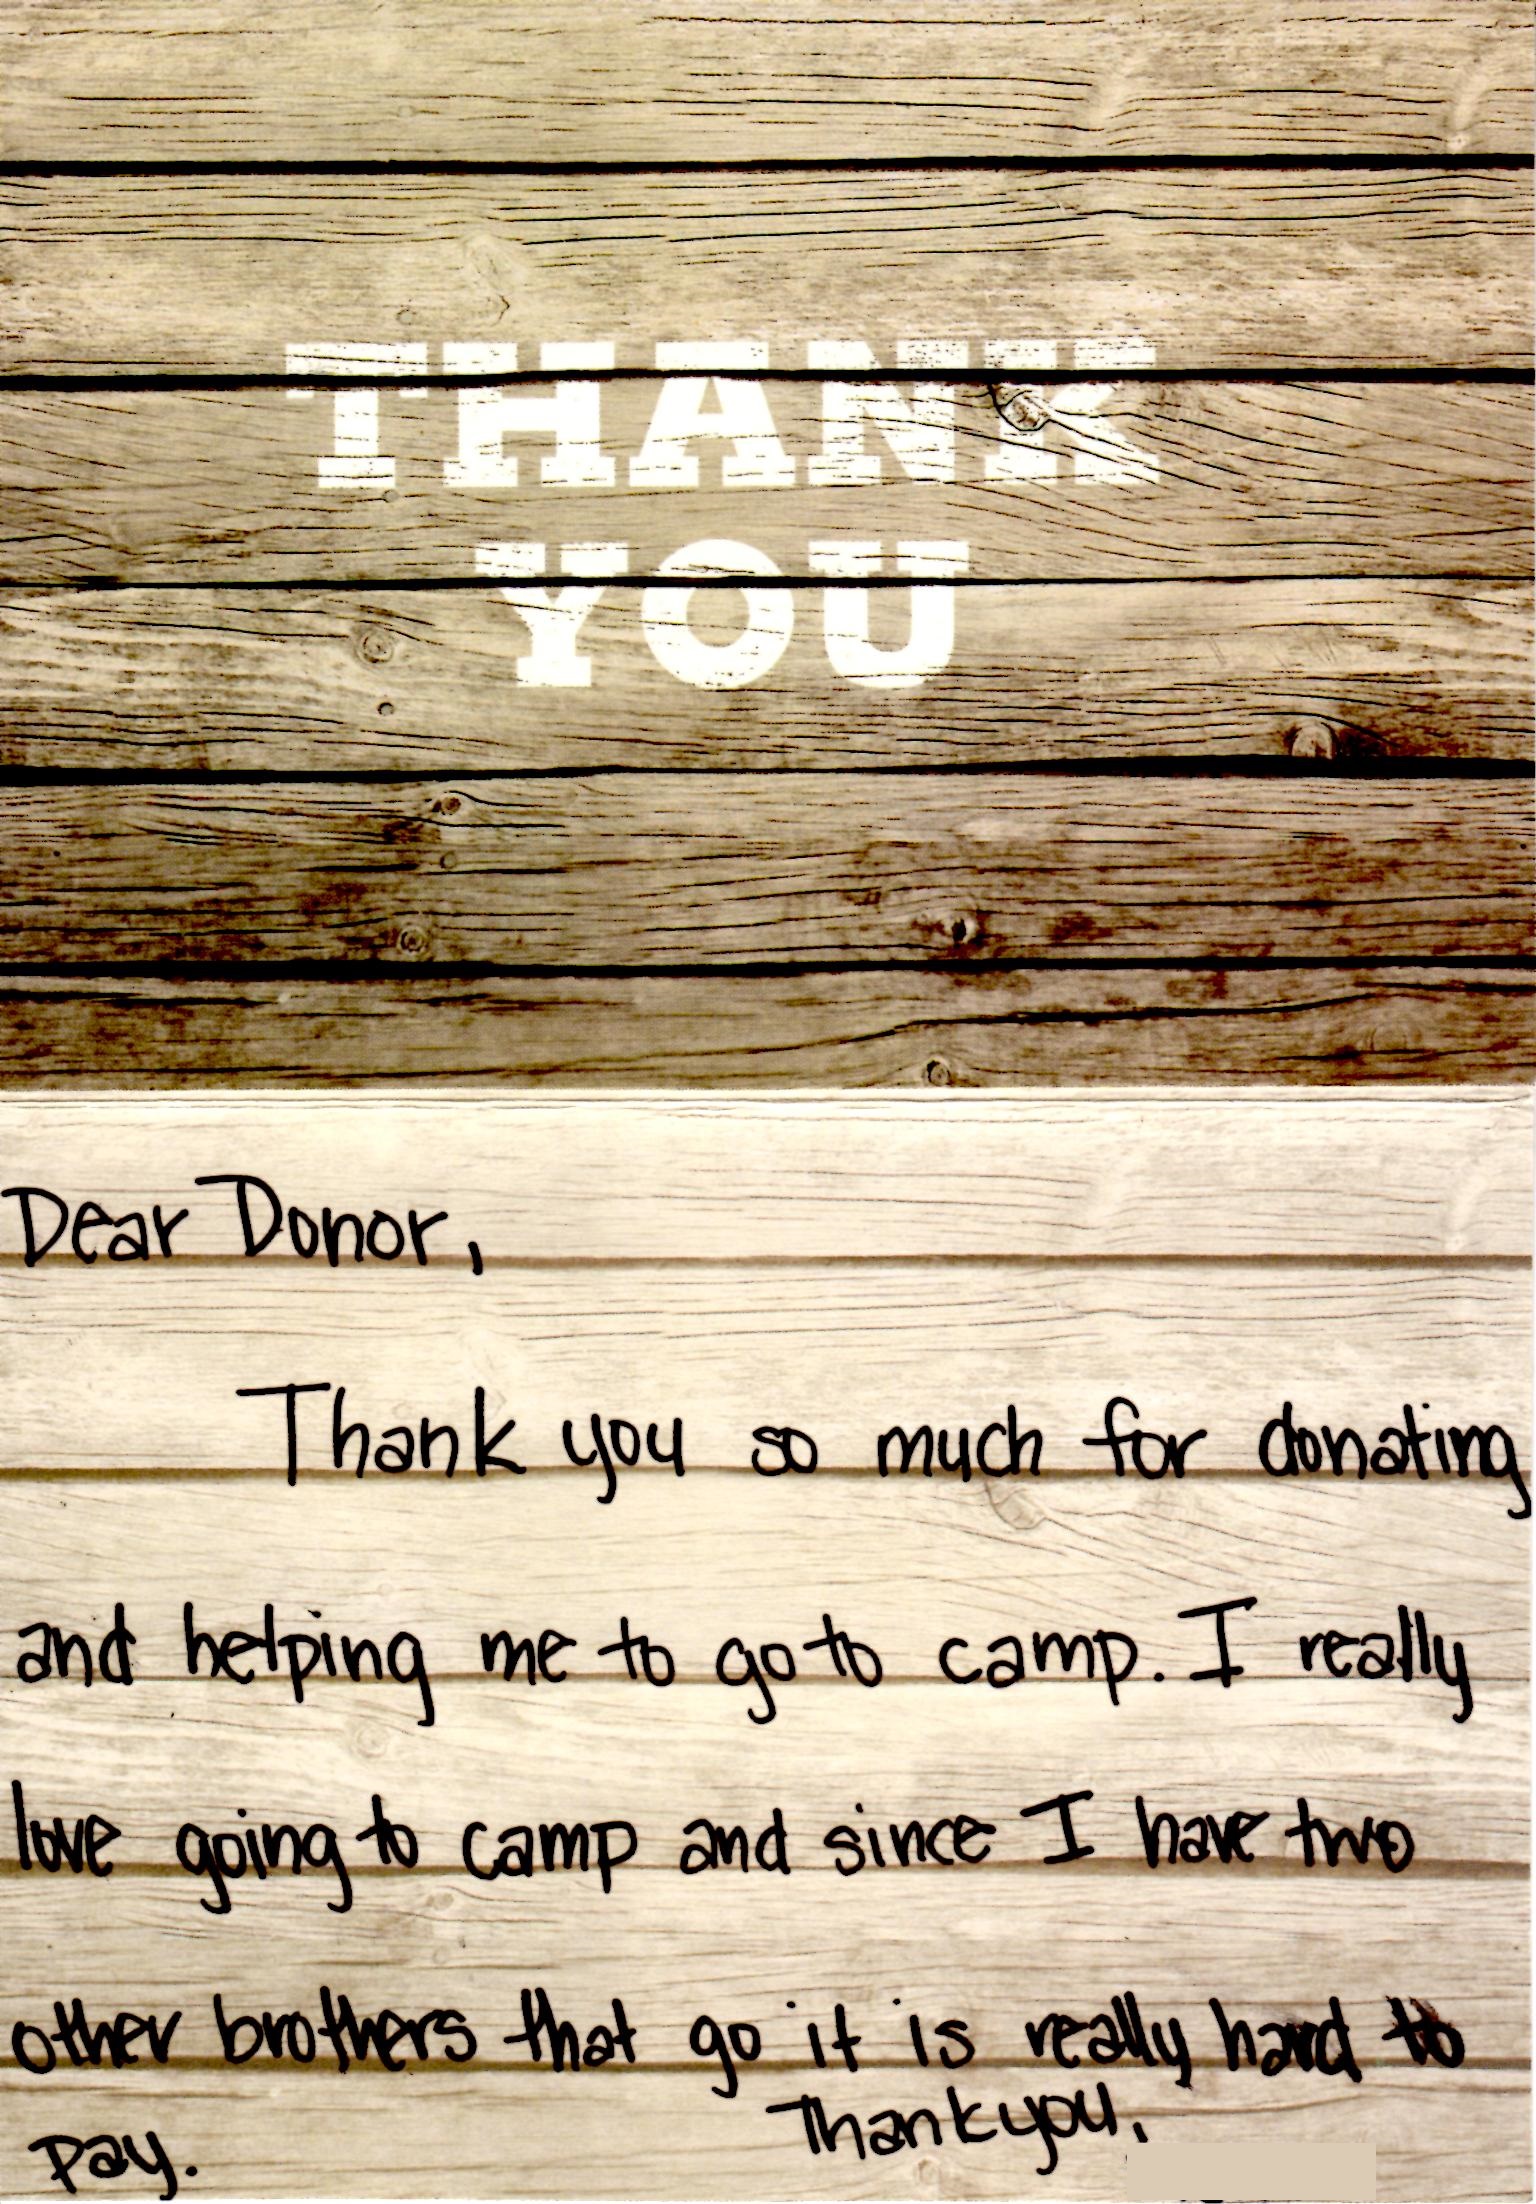 THANK
YOU
Dear Donor,
Thank you so much for donating
and helping me to go to camp. I really
love going to camp and since I have two
other brothers that go it is really hard to
pay.
Thank you,